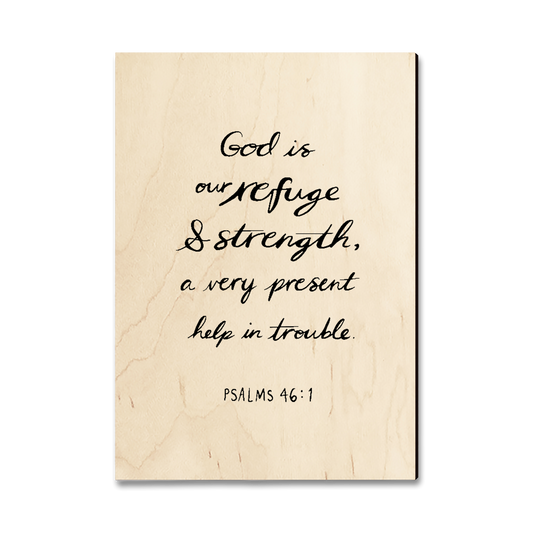 God is
our refuge
& strength,
a very present
help in trouble.
PSALMS 46:1